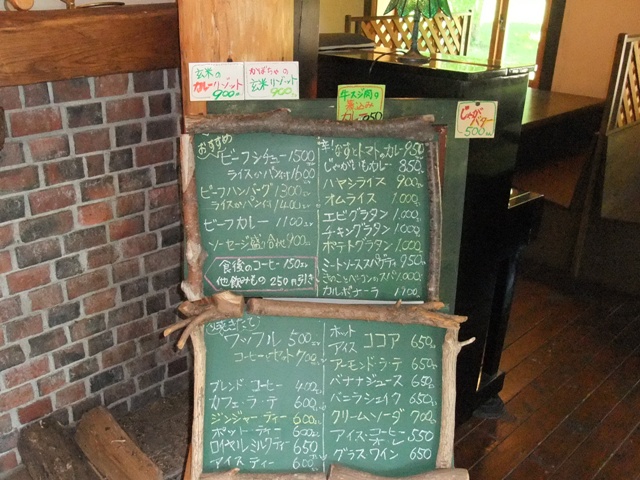 玄米の
カレーリゾット
900
かぼちゃの
玄米リゾット
900
牛スジ肉の
煮込み
カレー950
じゃがバター
500
おすすめ
ビーフシチュー 1500
ライスかパン付 1600
ビーフハンバーグ 1300
ライスかパン付 1400
ビーフカレー 1100
ソーセージ盛り合わせ 900
食後のコーヒー 150
他飲みもの 250円引き
なすとトマトのカレー 950
じゃがいもカレー 850
ハヤシライス 900
オムライス 1,000
エビグラタン 1,000
チキングラタン 1,000
ポテトグラタン 1,000
ミートソーススパゲティ 950
きのことベーコンのスパ 1,000
カルボナーラ
焼きたて
ワッフル 500
コーヒーセット 700
ブレンドコーヒー 400
カフェ・ラ・テ 600
ジンジャーティー 600
ポットティー 600
ロイヤルミルクティー 650
アイスティー 600
ホット
アイス ココア 650
アーモンド・ラテ 650
バナナジュース 650
バニラシェイク 650
クリームソーダ 700
アイスコーヒー
オレ 550
グラスワイン 650